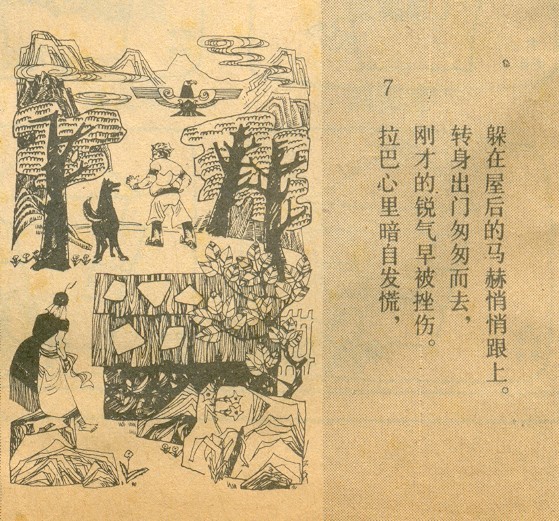 7
拉巴心里暗自发慌，
刚才的锐气早被挫伤。
转身出门匆匆而去，
躲在屋后的马赫悄悄跟上。